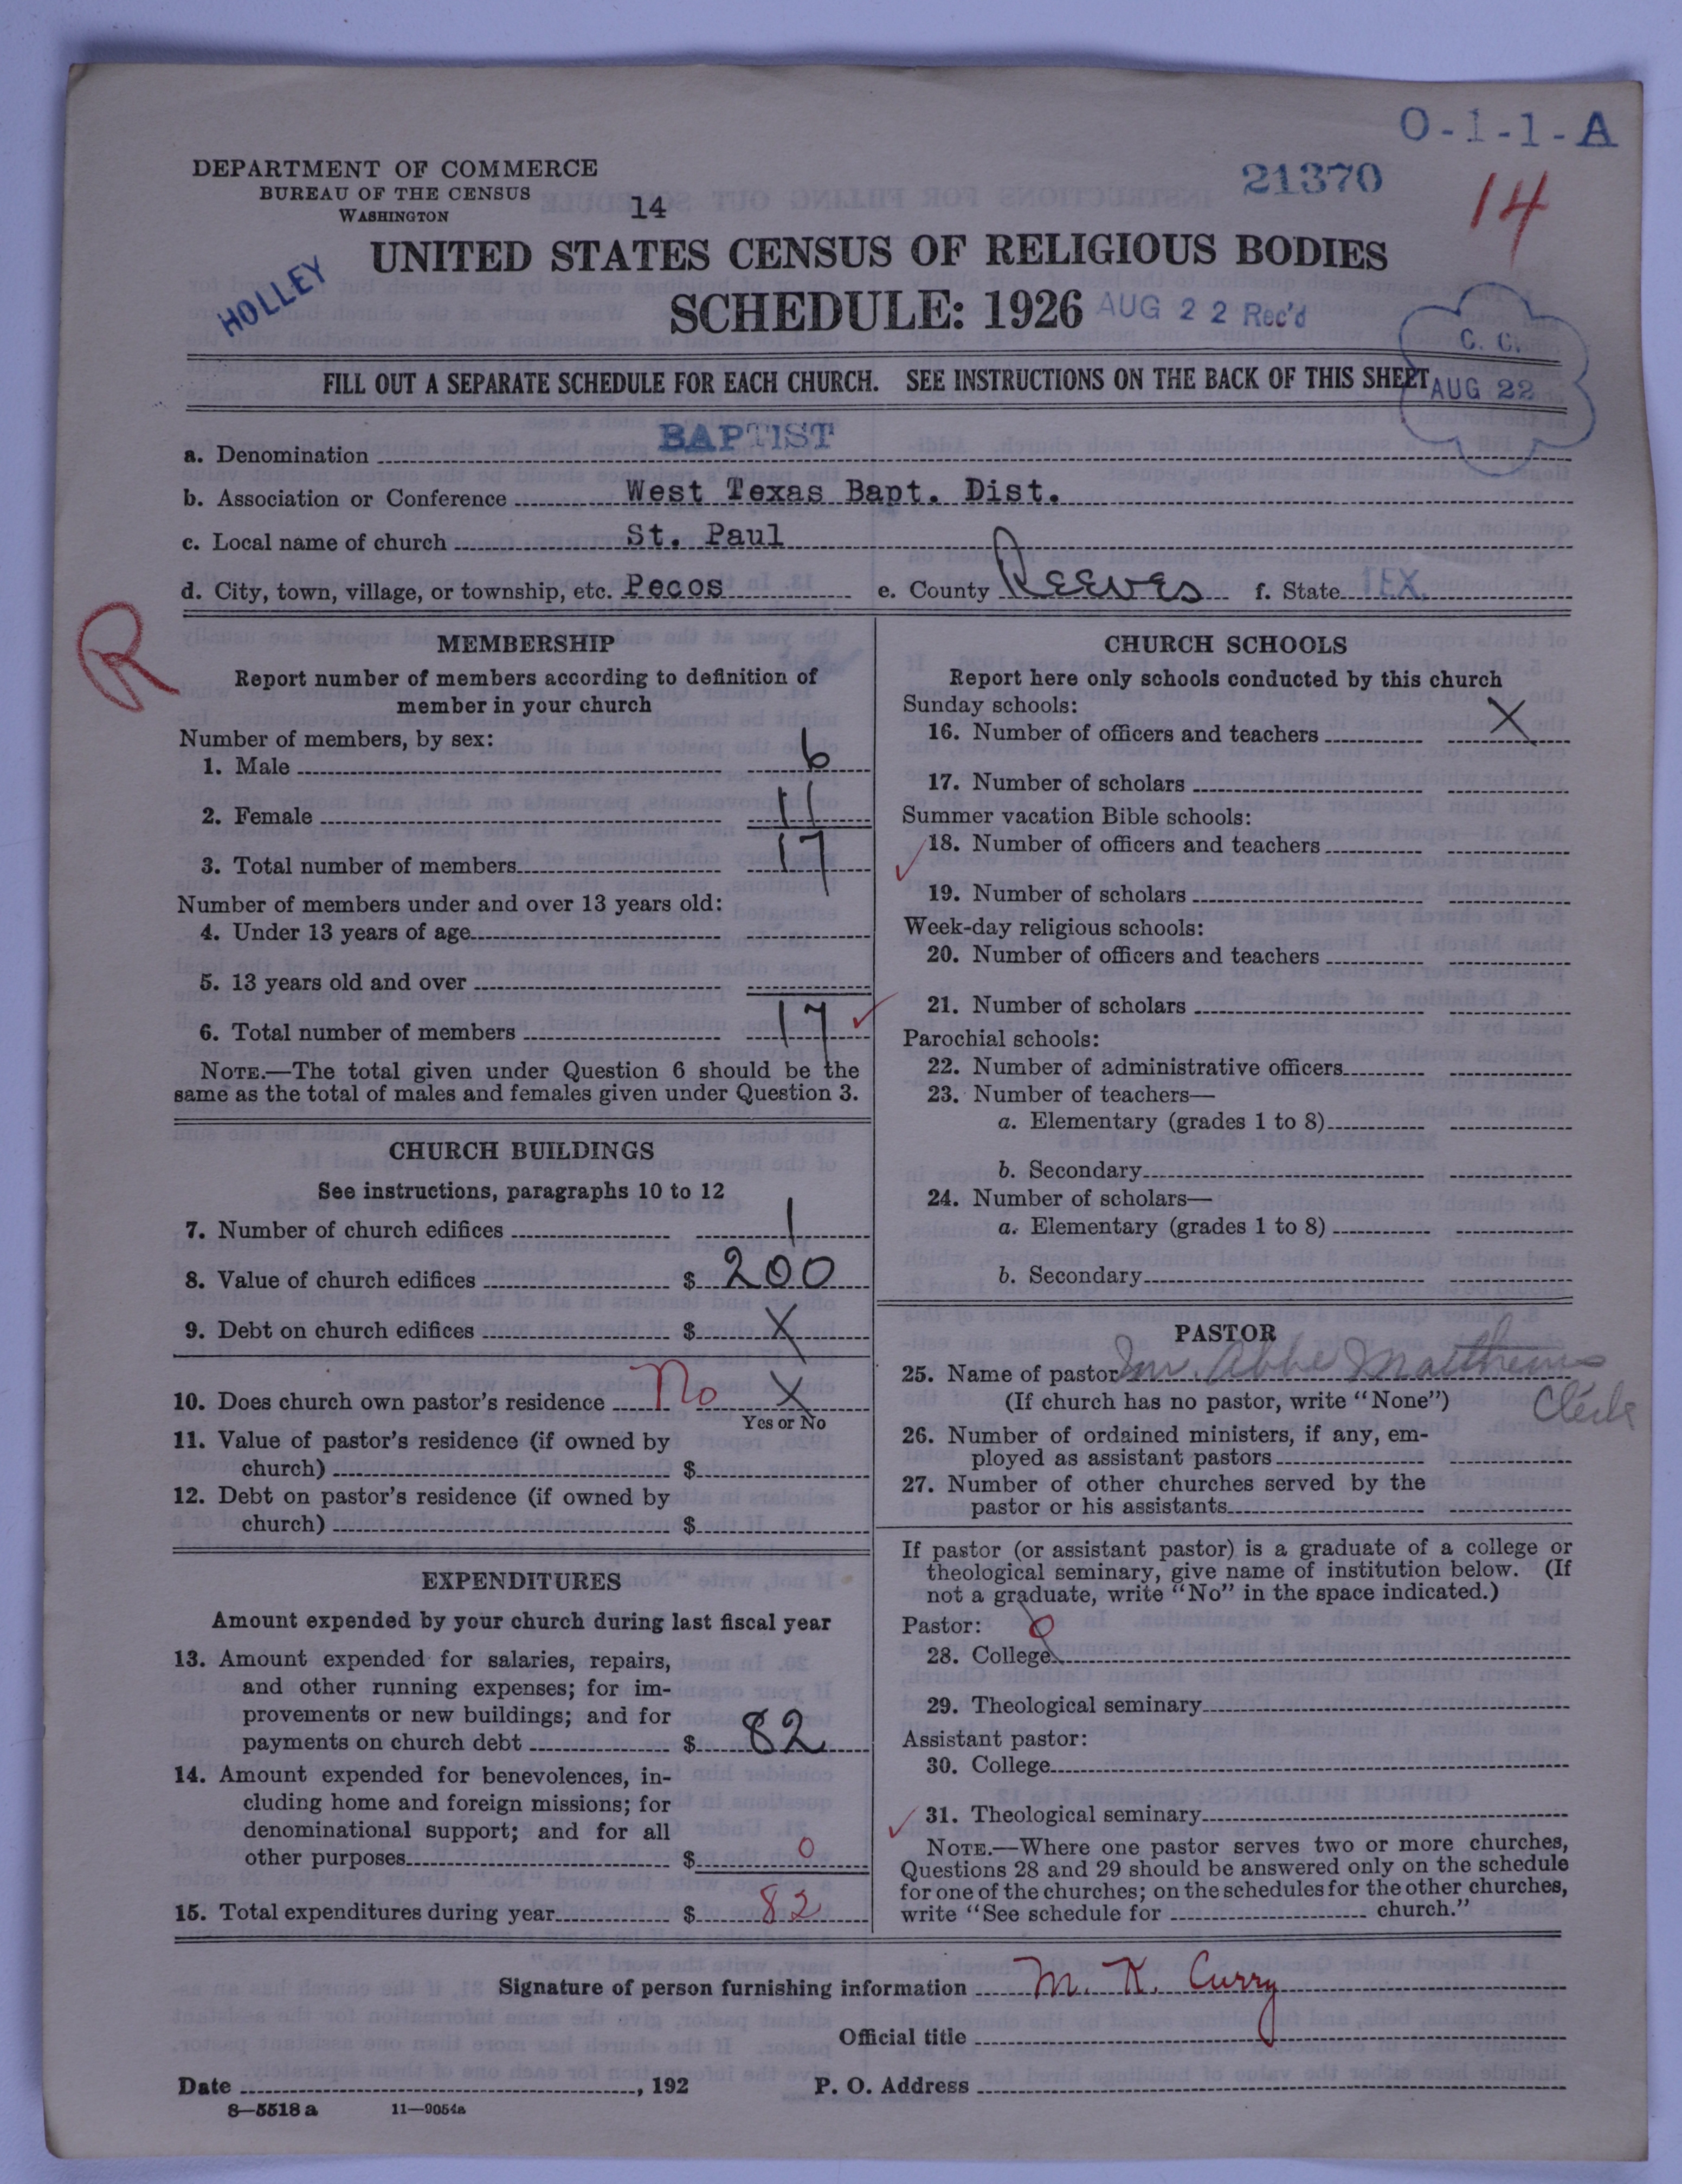 O-1-1-A
DEPARTMENT OF COMMERCE
BUREAU OF THE CENSUS
WASHINGTON
14
21370
14
UNITED STATES CENSUS OF RELIGIOUS BODIES
HOLLEY
SCHEDULE: 1926
AUG 22 Rec'd
C. C.
AUG 22
FILL OUT A SEPARATE SCHEDULE FOR EACH CHURCH. SEE INSTRUCTIONS ON THE BACK OF THIS SHEET
a. Denomination BAPTIST
b. Association or Conference West Texas Bapt. Dist.
c. Local name of church St. Paul
d. City, town, village, or township, etc. Pecos e. County Reeves f. State TEX.
R
MEMBERSHIP
Report number of members according to definition of
member in your church
Number of members, by sex:
1. Male 6
2. Female 11
3. Total number of members 17
Number of members under and over 13 years old:
4. Under 13 years of age
5. 13 years old and over
6. Total number of members 17
NOTE.—The total given under Question 6 should be the
same as the total of males and females given under Question 3.
CHURCH BUILDINGS
See instructions, paragraphs 10 to 12
7. Number of church edifices 1
8. Value of church edifices $ 200
9. Debt on church edifices $ X
10. Does church own pastor's residence No X
Yes or No
11. Value of pastor's residence (if owned by
church) $
12. Debt on pastor's residence (if owned by
church) $
EXPENDITURES
Amount expended by your church during last fiscal year
13. Amount expended for salaries, repairs,
and other running expenses; for im-
provements or new buildings; and for
payments on church debt $ 82
14. Amount expended for benevolences, in-
cluding home and foreign missions; for
denominational support; and for all
other purposes $ 0
15. Total expenditures during year $ 82
CHURCH SCHOOLS
Report here only schools conducted by this church
Sunday schools:
16. Number of officers and teachers X
17. Number of scholars
Summer vacation Bible schools:
18. Number of officers and teachers
19. Number of scholars
Week-day religious schools:
20. Number of officers and teachers
21. Number of scholars
Parochial schools:
22. Number of administrative officers
23. Number of teachers—
a. Elementary (grades 1 to 8)
b. Secondary
24. Number of scholars—
a. Elementary (grades 1 to 8)
b. Secondary
PASTOR
25. Name of pastor Abbe Matthews
(If church has no pastor, write "None") Clerk
26. Number of ordained ministers, if any, em-
ployed as assistant pastors
27. Number of other churches served by the
pastor or his assistants
If pastor (or assistant pastor) is a graduate of a college or
theological seminary, give name of institution below. (If
not a graduate, write "No" in the space indicated.)
Pastor:
28. College
29. Theological seminary
Assistant pastor:
30. College
31. Theological seminary
NOTE.—Where one pastor serves two or more churches,
Questions 28 and 29 should be answered only on the schedule
for one of the churches; on the schedules for the other churches,
write "See schedule for church."
Signature of person furnishing information M. K. Curry
Official title
Date , 192 P. O. Address
8—5518 a 11—9054a